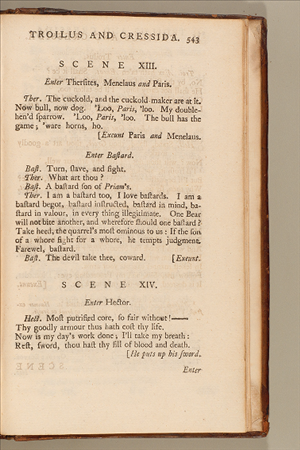 TROILUS AND CRESSIDA. 543
SCENE XIII.
Enter Therſites, Menelaus and Paris.
Ther. The cuckold, and the cuckold maker are at it.
Now bull, now dog. 'Loo, Paris, 'loo. My double-
hen'd ſparrow. 'Loo, Paris, 'loo. The bull has the
game; 'ware horns, ho.
[Exeunt Paris and Menelaus.
Enter Baſtard.
Baſt. Turn, ſlave, and fight.
Ther. What art thou?
Baſt. A baſtard ſon of Priam's.
Ther. I am a baſtard too, I love baſtards. I am a
baſtard begot, baſtard inſtructed, baſtard in mind, ba-
ſtard in valour, in every thing illegitimate. One Bear
will not bite another, and wherefore ſhould one baſtard?
Take heed, the quarrel's moſt ominous to us: If the ſon
of a whore fight for a whore, he tempts judgment.
Farewel, baſtard.
Baſt. The devil take thee, coward. [Exeunt.
SCENE XIV.
Enter Hector.
Hect. Moſt putrified core, ſo fair without!——
Thy goodly armour thus hath coſt thy life.
Now is my day's work done; I'll take my breath:
Reſt, ſword, thou haſt thy fill of blood and death.
[He puts up his ſword.
Enter